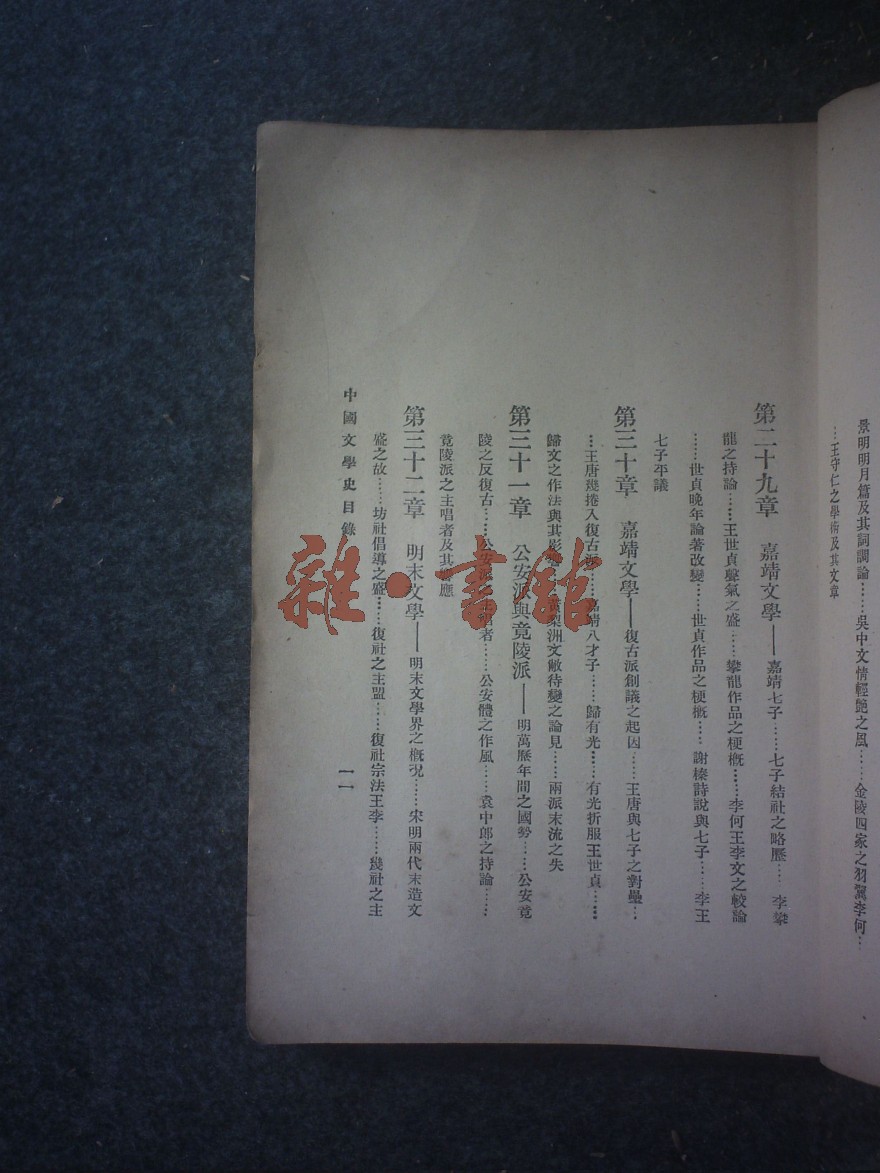 景明明月篇及其詞調論……吳中文情輕艷之風……金陵四家之羽翼李何…
…王守仁之學術及其文章
第二十九章　嘉靖文學——嘉靖七子……七子結社之略歷……李攀
龍之持論……王世貞聲氣之盛……攀龍作品之梗概……李何王李文之較論
……世貞晚年論著改變……世貞作品之梗概……謝榛詩說與七子……李王
七子平議
第三十章　嘉靖文學——復古派創議之起因……王唐與七子之對壘…
…王唐幾捲入復古派……嘉靖八才子……歸有光……有光折服王世貞……
歸文之作法與其影響……黃梨洲文敝待變之論見……兩派末流之失
第三十一章　公安派與竟陵派——明萬歷年間之國勢……公安竟
陵之反復古……公安派主唱者……公安體之作風……袁中郎之持論……
竟陵派之主唱者及其應
第三十二章　明末文學——明末文學界之概況……宋明兩代末造文
盛之故……坊社倡導之盛……復社之主盟……復社宗法王李……幾社之主
中國文學史目錄
一一
雜·書館